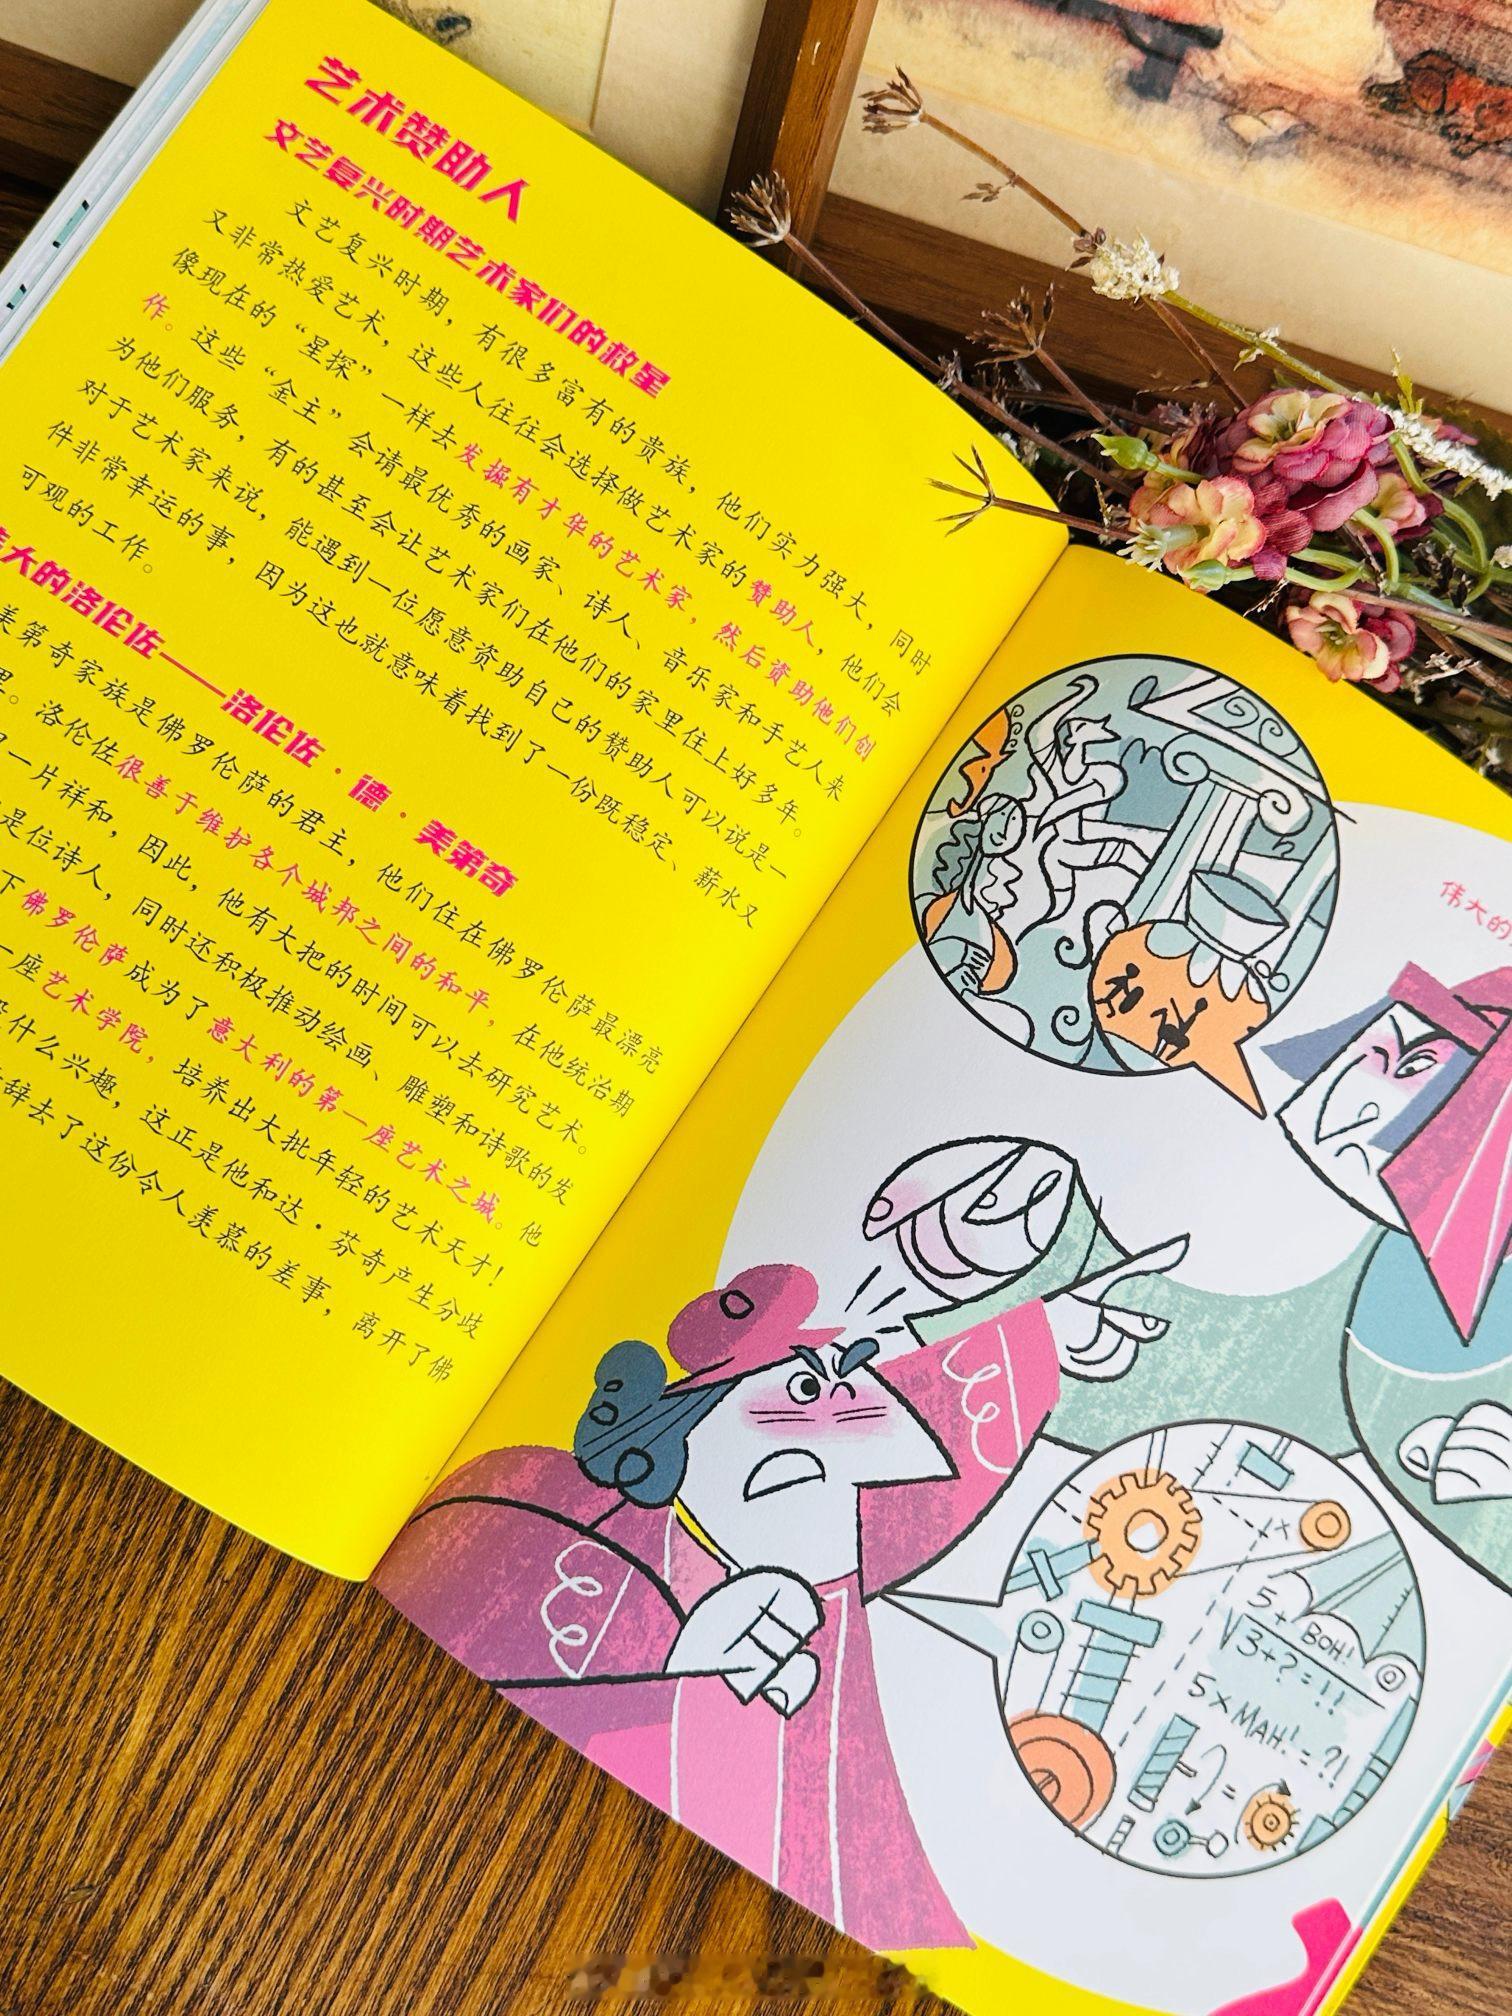 艺术赞助人
文艺复兴时期艺术家们的救星
文艺复兴时期，有很多富有的贵族，他们实力强大，同时
又非常热爱艺术，这些人往往会选择做艺术家的赞助人，他们会
像现在的“星探”一样去发掘有才华的艺术家，然后资助他们创
作。这些“金主”会请最优秀的画家、诗人、音乐家和手艺人来
为他们服务，有的甚至会让艺术家们在他们的家里住上好多年。
对于艺术家来说，能遇到一位愿意资助自己的赞助人可以说是一
件非常幸运的事，因为这也就意味着找到了一份既稳定、薪水又
可观的工作。
大的洛伦佐——洛伦佐·德·美第奇
美第奇家族是佛罗伦萨的君主，他们住在佛罗伦萨最漂亮
里。洛伦佐很善于维护各个城邦之间的和平，在他统治期
一片祥和，因此，他有大把的时间可以去研究艺术。
是位诗人，同时还积极推动绘画、雕塑和诗歌的发
下佛罗伦萨成为了意大利的第一座艺术之城。他
一座艺术学院，培养出大批年轻的艺术天才！
没什么兴趣，这正是他和达·芬奇产生分歧
辞去了这份令人羡慕的差事，离开了佛
伟大的
5+ BOH!
√3+?=!!
5×MAH!=?!
=